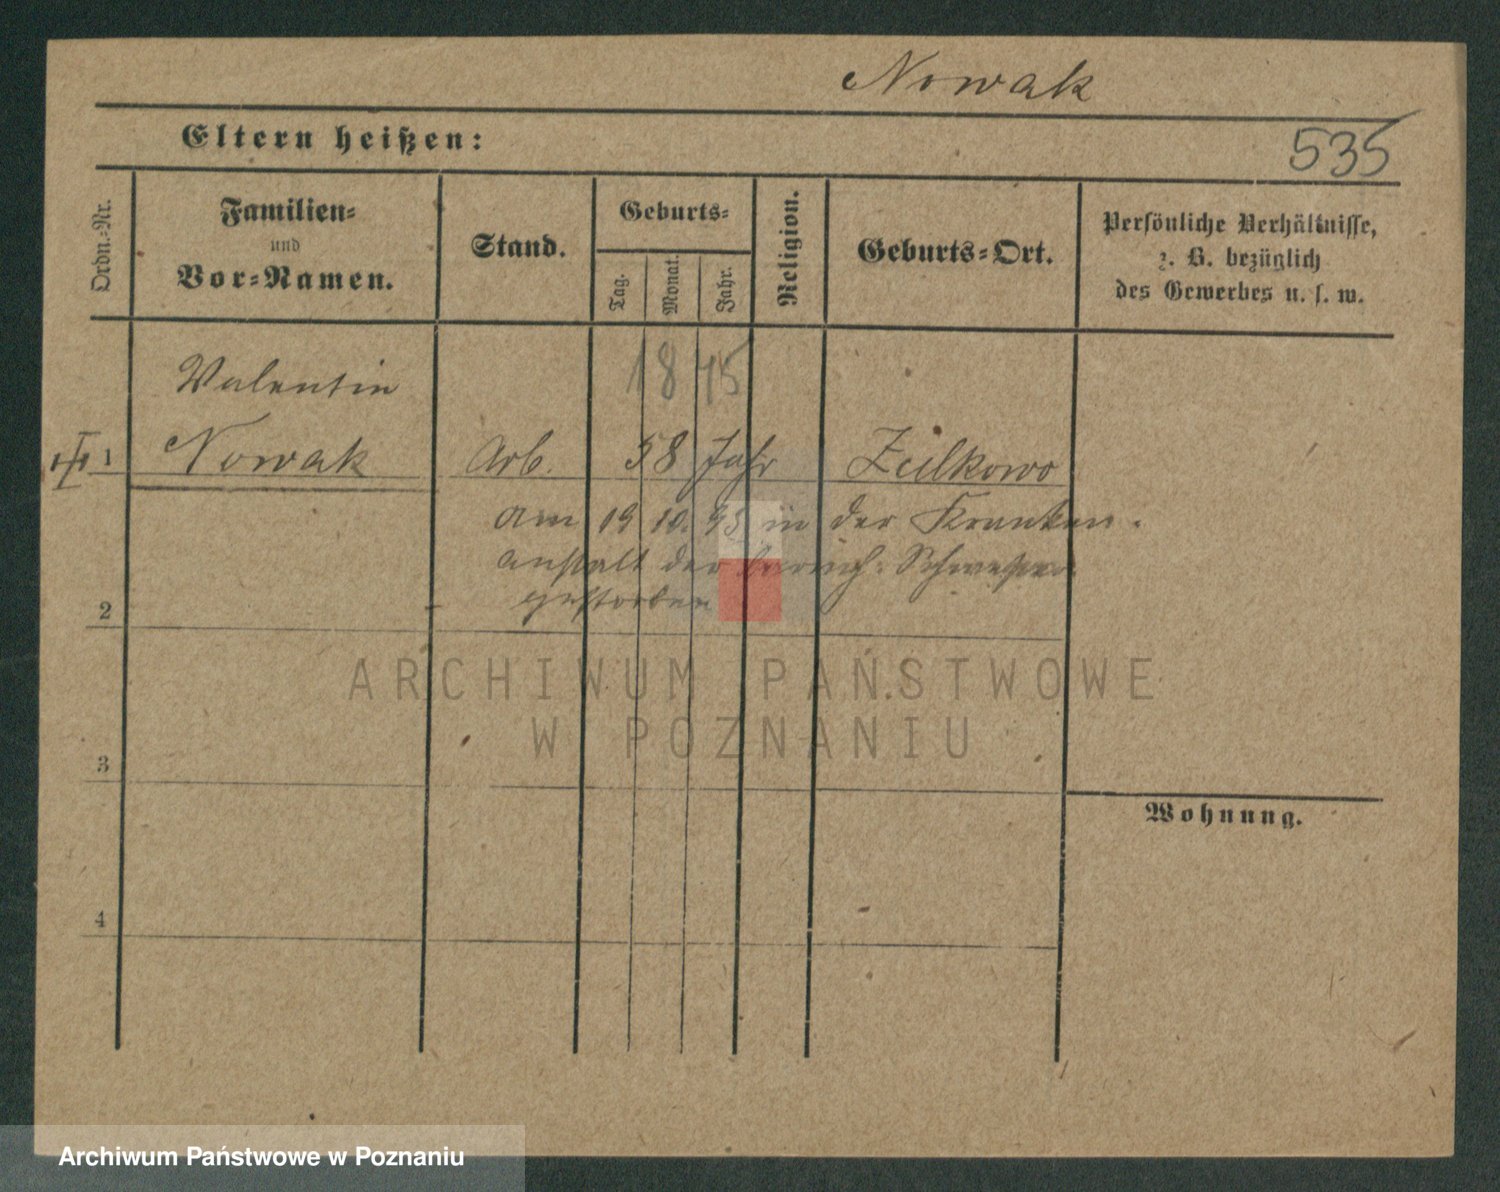 Nowak
Eltern heißen:
535
Ordn.-Nr.
Familien-
und
Vor-Namen.
Stand.
Geburts-
Tag.
Monat.
Jahr.
Religion.
Geburts-Ort.
Persönliche Verhältnisse,
z. B. bezüglich
des Gewerbes u. s. w.
Valentin
18
1 Nowak Arb. 58 Jahr
am 19 10. in der Kranken-
anstalt der barmh. Schwestern
gestorben
2
ARCHIWUM PAŃSTWOWE
W POZNANIU
3
Wohnung.
4
Archiwum Państwowe w Poznaniu